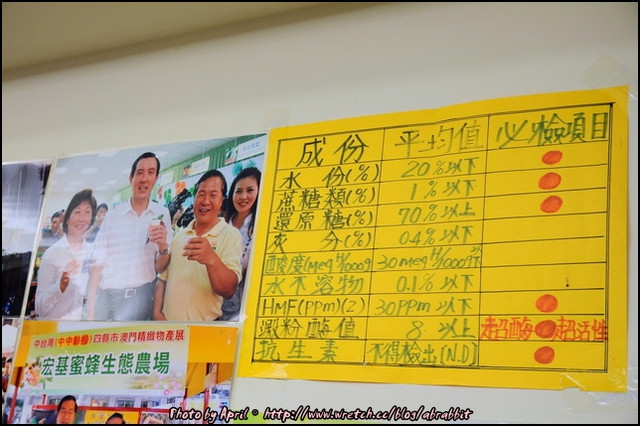 成份 平均值 必檢項目
水份(%) 20%以下
蔗糖類(%) 1%以下
還原糖(%) 70%以上
灰分(%) 0.4%以下
酸度(meq H/1000g 30meq H/1000g以下
水不溶物 0.1%以下
HMF(PPm)(2) 30PPm以下
澱粉酶值 8以上 超活性
抗生素 不得檢出[N.D]
中台灣(中中彰投)四縣市澳門精緻物產展
宏基蜜蜂生態農場
Photo by April © http://www.wretch.cc/blog/abrabbit